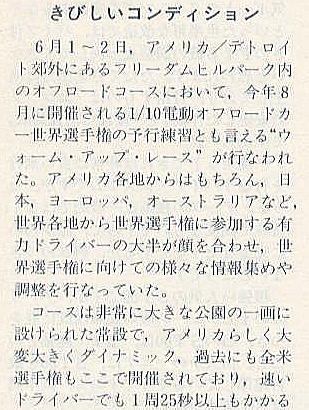 きびしいコンディション
6月1～2日，アメリカ/デトロイ
ト郊外にあるフリーダムヒルパーク内
のオフロードコースにおいて，今年8
月に開催される1/10電動オフロードカ
ー世界選手権の予行練習とも言える“ウ
ォーム・アップ・レース”が行なわれ
た。アメリカ各地からはもちろん，日
本，ヨーロッパ，オーストラリアなど，
世界各地から世界選手権に参加する有
力ドライバーの大半が顔を合わせ，世
界選手権に向けての様々な情報集めや
調整を行なっていた。
コースは非常に大きな公園の一画に
設けられた常設で，アメリカらしく大
変大きくダイナミック，過去にも全米
選手権もここで開催されており，速い
ドライバーでも1周25秒以上もかかる